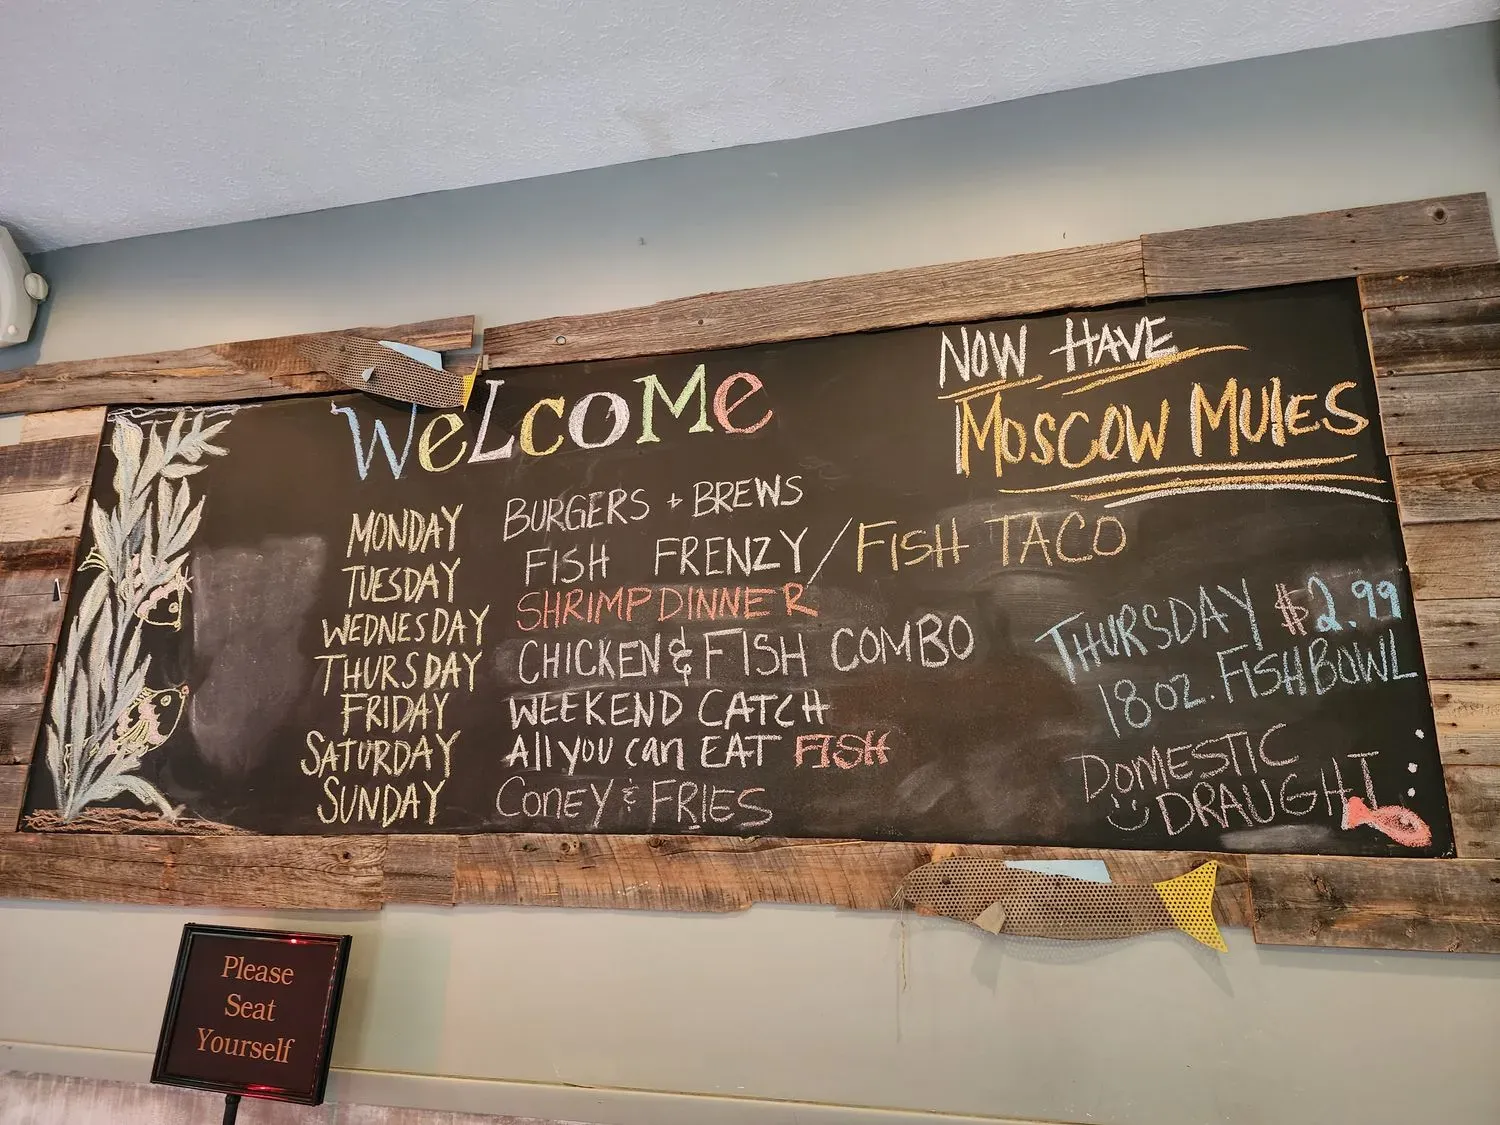 WeLcoMe
NOW HAVE
MOSCOW MULES
MONDAY BURGERS + BREWS
TUESDAY FISH FRENZY / FISH TACO
WEDNESDAY SHRIMP DINNER
THURSDAY CHICKEN & FISH COMBO
FRIDAY WEEKEND CATCH
SATURDAY All you can EAT FISH
SUNDAY CONEY & FRIES
THURSDAY $2.99
18 OZ. FISHBOWL
DOMESTIC
DRAUGHT
Please
Seat
Yourself